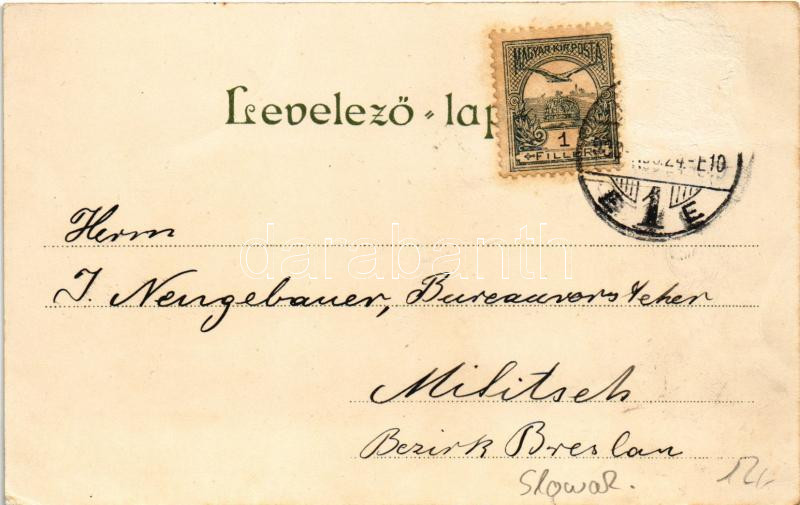 MAGYAR·KIR·POSTA
Levelező-lap
1
FILLÉR
24.-E10
E 1 E
Herrn
J. Neugebauer, Bureauvorsteher
darabanth
Militsch
Bezirk Breslau
Slowak.
12,-